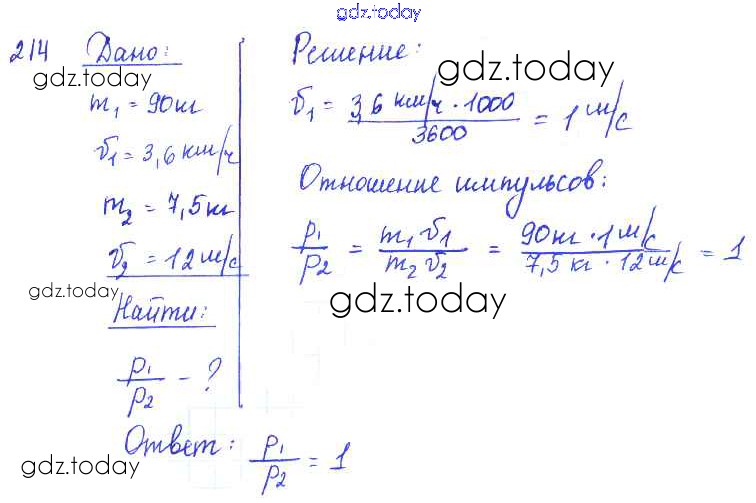 gdz.today
214 Дано:
gdz.today
m₁ = 90кг
v₁ = 3,6 км/ч
m₂ = 7,5кг
v₂ = 12 м/с
gdz.today
Найти:
p₁/p₂ - ?
Решение:
gdz.today
v₁ = 3,6 км/ч · 1000 / 3600 = 1 м/с
Отношение импульсов:
p₁/p₂ = m₁v₁/m₂v₂ = 90кг · 1 м/с / 7,5 кг · 12 м/с = 1
gdz.today
Ответ: p₁/p₂ = 1
gdz.today